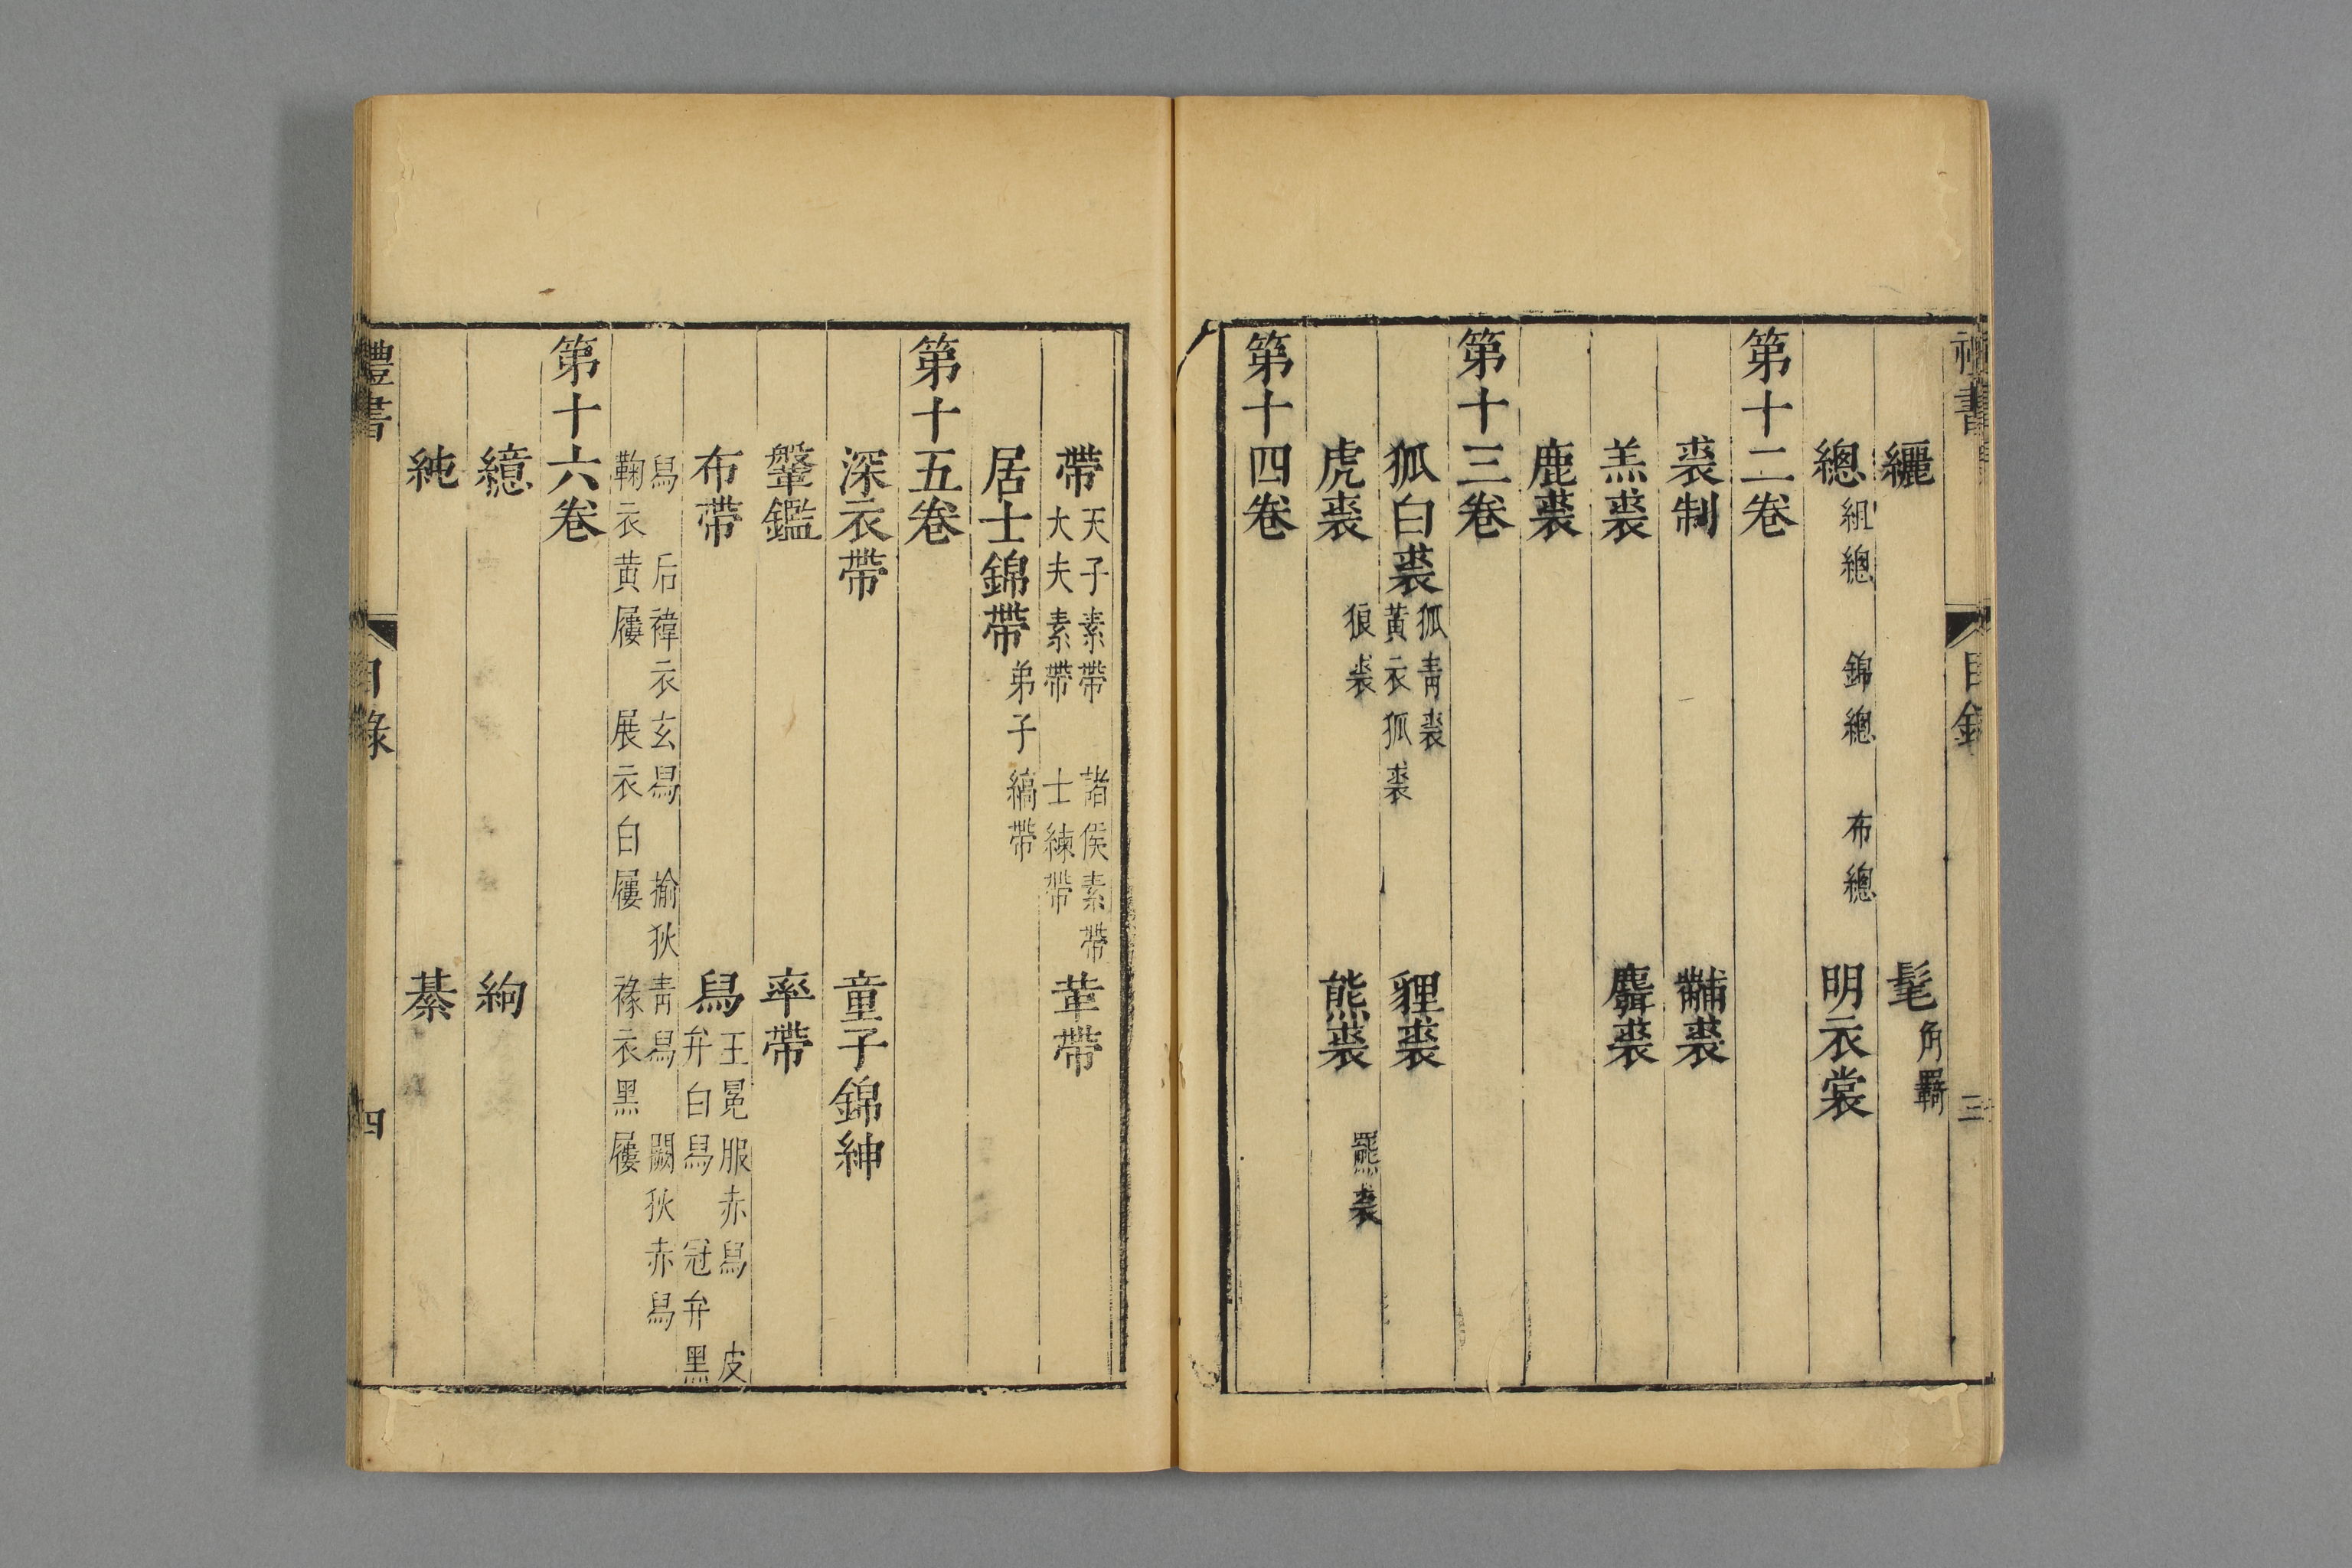 禮書 目錄 三
纚 髦 角羈
總 組總 錦總 布總 明衣裳
第十二卷
裘制 黼裘
羔裘 麛裘
鹿裘
第十三卷
狐白裘 狐青裘 黃衣狐裘 貍裘
虎裘 狼裘 熊裘 羆裘
第十四卷
帶 天子素帶 諸侯素帶 大夫素帶 士練帶 革帶
居士錦帶 弟子縞帶
第十五卷
深衣帶 童子錦紳
鞶鑑 率帶
布帶 舄 王冕服赤舄 皮弁白舄 冠弁黑
舄 后褘衣玄舄 揄狄青舄 闕狄赤舄
鞠衣黄屨 展衣白屨 褖衣黑屨
第十六卷
繶 絇
純 綦
禮書 目錄 四